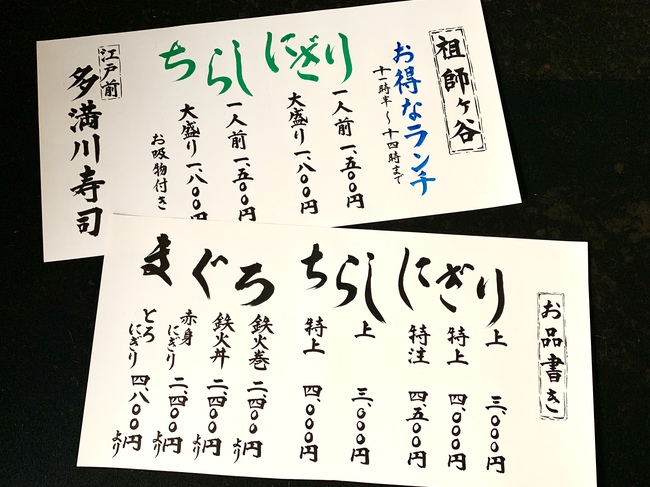 祖師ヶ谷
お得なランチ
十一時半〜十四時まで
にぎり
一人前 一、五〇〇円
大盛り 一、八〇〇円
ちらし
一人前 一、五〇〇円
大盛り 一、八〇〇円
お吸物付き
江戸前
多満川寿司
お品書き
にぎり
上 三、〇〇〇円
特上 四、〇〇〇円
特注 四、五〇〇円
ちらし
上 三、〇〇〇円
特上 四、〇〇〇円
まぐろ
鉄火巻 二、四〇〇円より
鉄火丼 二、四〇〇円より
赤身にぎり 二、四〇〇円より
とろにぎり 四、八〇〇円より